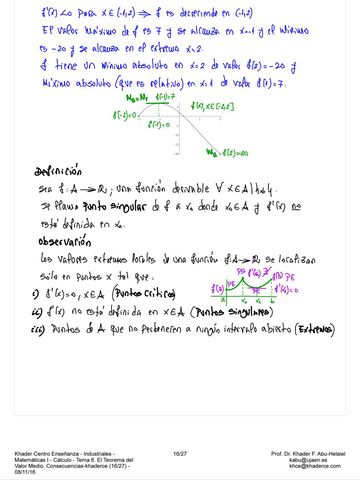 f'(x) < 0 para x ∈ (-1,2) ⟹ f es decreciente en (-1,2)
El valor máximo de f es 7 y se alcanza en x=-1 y el mínimo
es -20 y se alcanza en el extremo x=2.
f tiene un mínimo absoluto en x=2 de valor f(2)=-20 y
máximo absoluto (que es relativo) en x=1 de valor f(1)=7.
f(-1)=7
f(x), x∈[-2,2]
f'(-1)=0
f(-2)=0
f(2)=20
Definición
Sea f: A → ℝ, una función derivable ∀ x∈A\{x₀}.
Se llama punto singular de f a x₀ donde x₀∈A y f'(x) no
está definida en x₀.
Observación
Los valores extremos locales de una función f: A → ℝ se localizan
sólo en puntos x tal que:
i) f'(x)=0, x∈A (Puntos críticos)
ii) f'(x) no está definida en x∈A (Puntos singulares)
iii) Puntos de A que no pertenecen a ningún intervalo abierto (Extremos)
PS
PE
f(b) PE
f(a) PE
PC
f'(x₁)=0
a x₀ x₁ b
Khader Centro Enseñanza - Industriales -
Matemáticas I - Cálculo - Tema 8. El Teorema del
Valor Medio. Consecuencias-khaderce (16/27) -
08/11/16
16/27
Prof. Dr. Khader F. Abu-Helaiel
kabu@ujaen.es
khce@khaderce.com